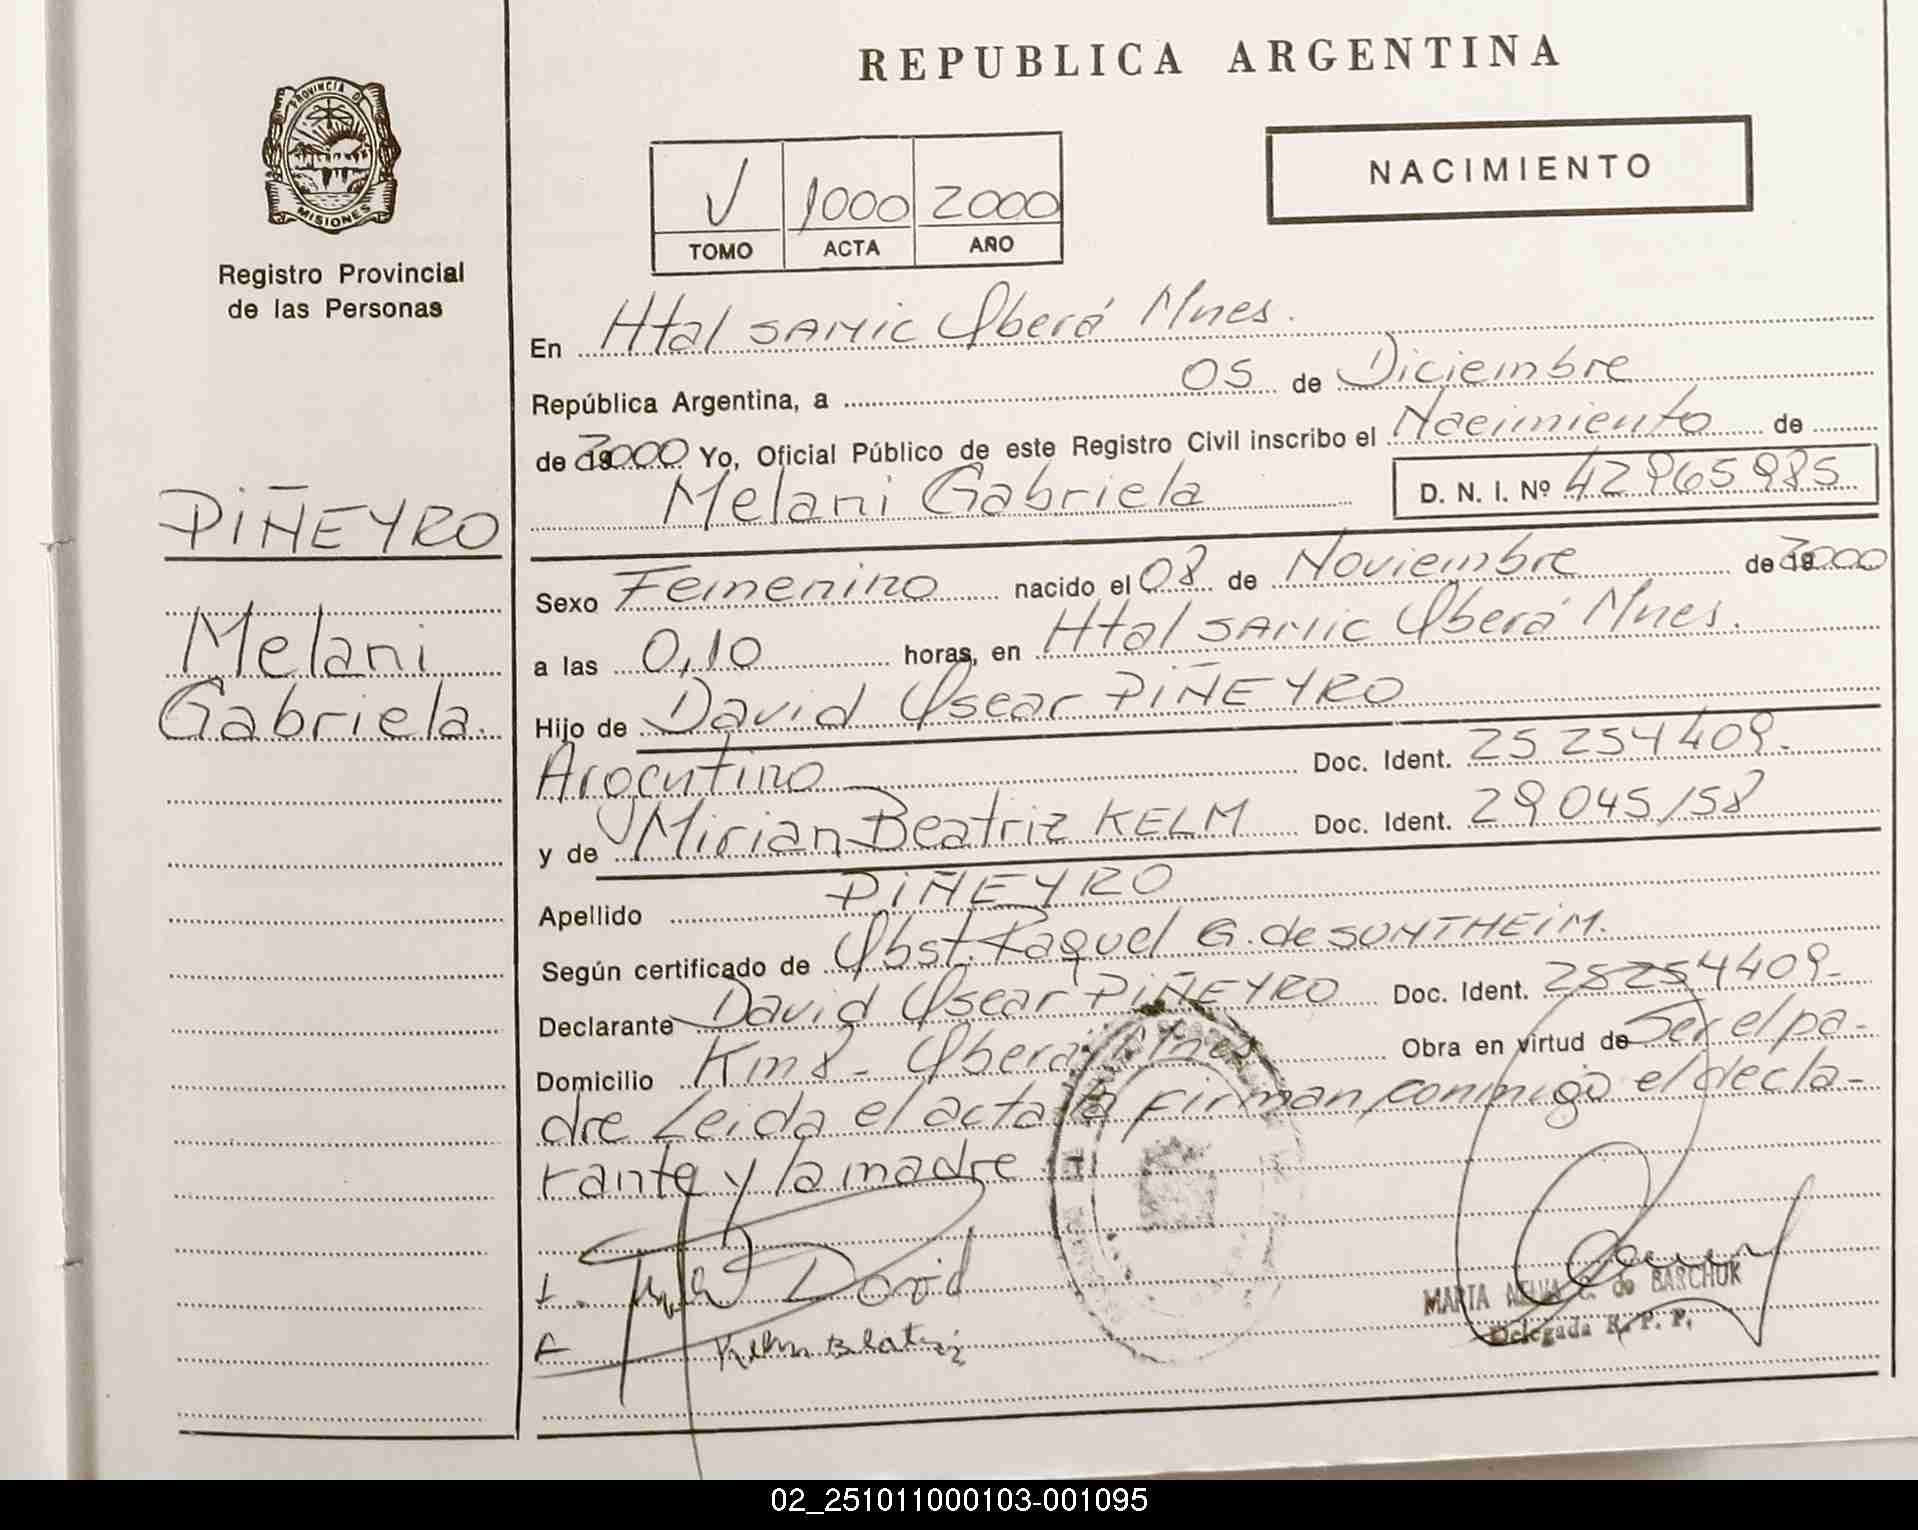 REPUBLICA ARGENTINA
PROVINCIA DE
MISIONES
Registro Provincial
de las Personas
NACIMIENTO
V 1000 2000
TOMO ACTA AÑO
En Htal SAMIC Oberá Mnes.
República Argentina, a 05 de Diciembre
de 2000 Yo, Oficial Público de este Registro Civil inscribo el Nacimiento de
Melani Gabriela D. N. I. Nº 42965985
PIÑEYRO
Melani
Gabriela.
Sexo Femenino nacido el 08 de Noviembre de 2000
a las 0,10 horas, en Htal SAMIC Oberá Mnes.
Hijo de David Oscar PIÑEYRO
Argentino Doc. Ident. 25 254 409.
y de Mirian Beatriz KELM Doc. Ident. 29 045 158
Apellido PIÑEYRO
Según certificado de Obst. Raquel G. de SONTHEIM.
Declarante David Oscar PIÑEYRO Doc. Ident. 25254409.
Domicilio Km 8 - Oberá Mnes Obra en virtud de Ser el pa-
dre Leida el acta la firman conmigo el decla-
rante y la madre
David
Kelm Beatriz
MARTA C. de BARCHUK
Delegada R. P. P.
02_251011000103-001095